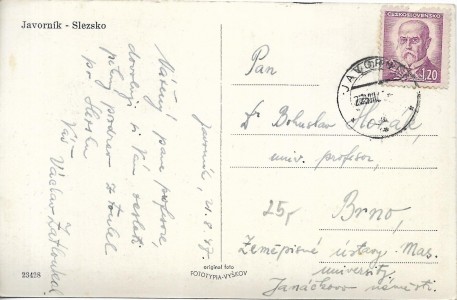 Javorník - Slezsko
Javorník, 21.8.47.
Vážený pane profesore,
dovoluji si Vám zaslati
pěkný pozdrav z toulek
po Slezsku
Váš Václav
23428
original foto
FOTOTYPIA-VYŠKOV
ČESKOSLOVENSKO
1.20
JAVORNÍK
Pan
Dr Bohuslav Horák,
univ. profesor,
Brno,
Zeměpisné ústavy Mas.
university,
Janáčkovo náměstí.